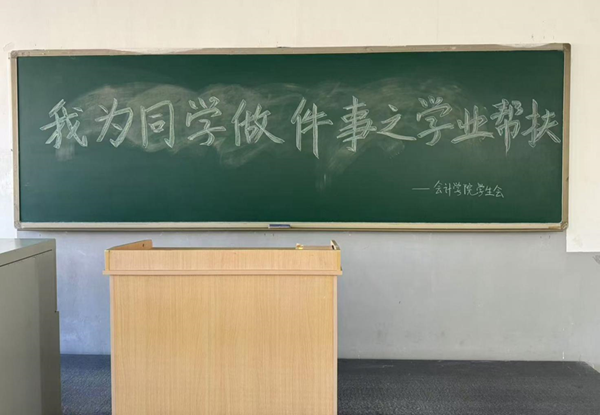 我为同学做件事之学业帮扶
——会计学院学生会